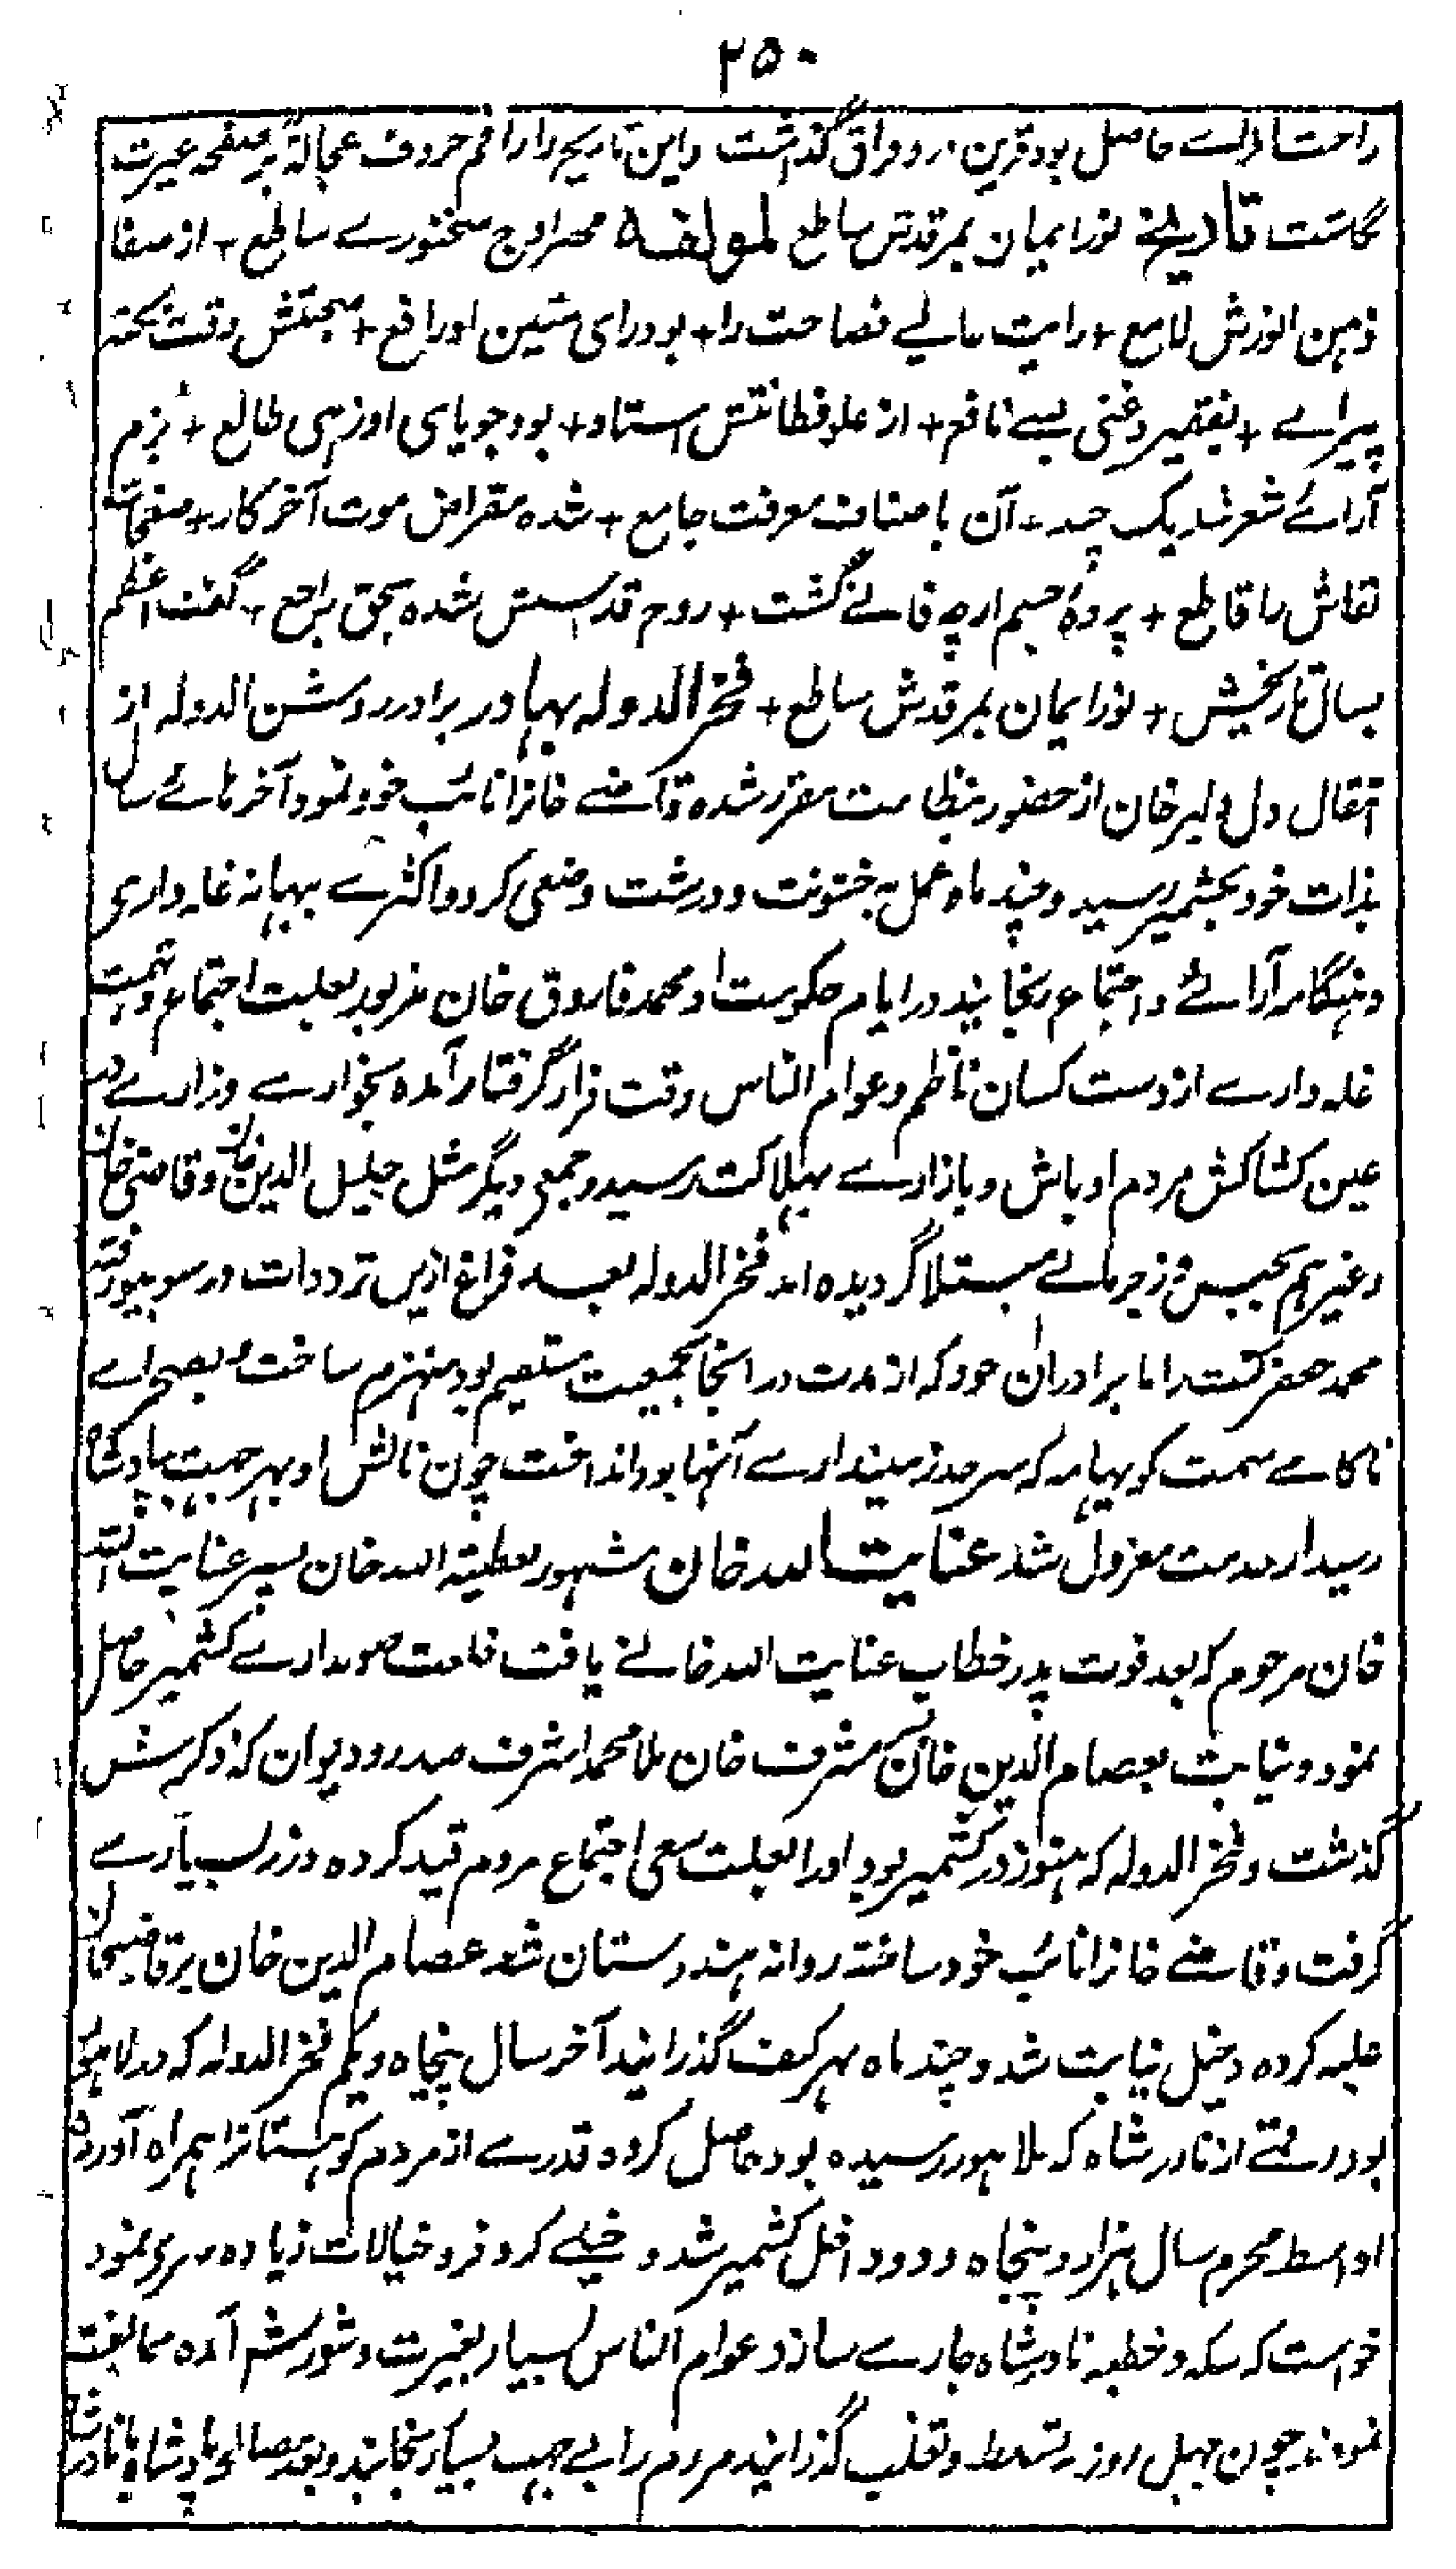 ۲۵۰
راحت حاصل بود قرین درد و فراق گذاشت و این تاریخ را راقم حروف عجالة بر صفحه عبرت
نگاشت تاریخ نور ایمان بمرقدش ساطع لمولفه مهر اوج سخنوری ساطع + از صفا
ذهن انورش لامع + رایت عالی فصاحت را + بود رای متین او رافع + صحبتش وقت نکته
پیرای + بفقیر و غنی بسے نافع + از علو فطانتش استاد + بود جویای او ز هی طالع + بزم
آرائے شعر شد یک چند + آن باصناف معرفت جامع + شده مقراض موت آخر کار + صفحات
نقاش را قاطع + پردهٔ جسم ارچه فانے گشت + روح قدسیش شده بحق راجع + گفت اعظم
بسال تاریخش + نور ایمان بمرقدش ساطع + فخر الدوله بهادر برادر روشن الدوله از
انتقال دل دلیر خان از حضور بنظامت مقرر شده قاضے خانرا نائب خود نمود آخرهائے سال
بذات خود بکشمیر رسید و چند ماه عمل بخشونت و درشت وضعی کرد و اکثرے ببهانه غله داری
و هنگامه آرائے و اجتماع رنجانید در ایام حکومت او محمد فاروق خان مزبور بعلت اجتماع و تهمت
غله دارے از دست کسان ناظم و عوام الناس وقت فرار گرفتار آمده بخوارے و زارے در
عین کشاکش مردم اوباش و بازارے بهلاکت رسید و جمعی دیگر مثل جلیل الدین خان و قاضی خان
و غیرهم بحبس و زجر مبتلا گردیده اند فخر الدوله بعد فراغ ازین ترددات در سوپور رفته
محمد جعفر کنت را با برادران خود که از مدت در انجا بجمعیت مستقیم بود منهزم ساخت و بصحراے
ناکامے سمت کوهپامه که سرحد زمیندارے آنها بود انداخت چون نالش او بهر جهت بپادشاه
رسید از خدمت معزول شد عنایت الله خان مشهور بعطیة الله خان پسر عنایت الله
خان مرحوم که بعد فوت پدر خطاب عنایت الله خانے یافت خلعت صوبدارے کشمیر حاصل
نمود و نیابت بعصام الدین خان مشرف خان ملا محمد اشرف صدر و دیوان که ذکرش
گذشت و فخر الدوله که هنوز در کشمیر بود او را بعلت سعی اجتماع مردم قید کرده و زر بسیارے
گرفت و قاضے خانرا نائب خود ساخته روانه هندوستان شد عصام الدین خان بر قاضیخان
غلبه کرده دخیل نیابت شد و چند ماه بهر کیف گذرانید آخر سال پنجاه و یکم فخر الدوله که در لاهور
بود رقمے از نادر شاه که بلاهور رسیده بود حاصل کرد و قدرے از مردم کوهستانرا همراه آورده
اواسط محرم سال هزار و پنجاه و دو داخل کشمیر شد و خیلے کر و فر و خیالات زیاده سری نمود
خواست که سکه و خطبه نادر شاه جارے سازد عوام الناس بسیار بغیرت و شورش آمده ممانعت
نمودند چون چهل روز بتسلط و تغلب گذرانید مردم را بے جهت بسیار رنجانید و بعد مصالحه پادشاه با نادر شاه